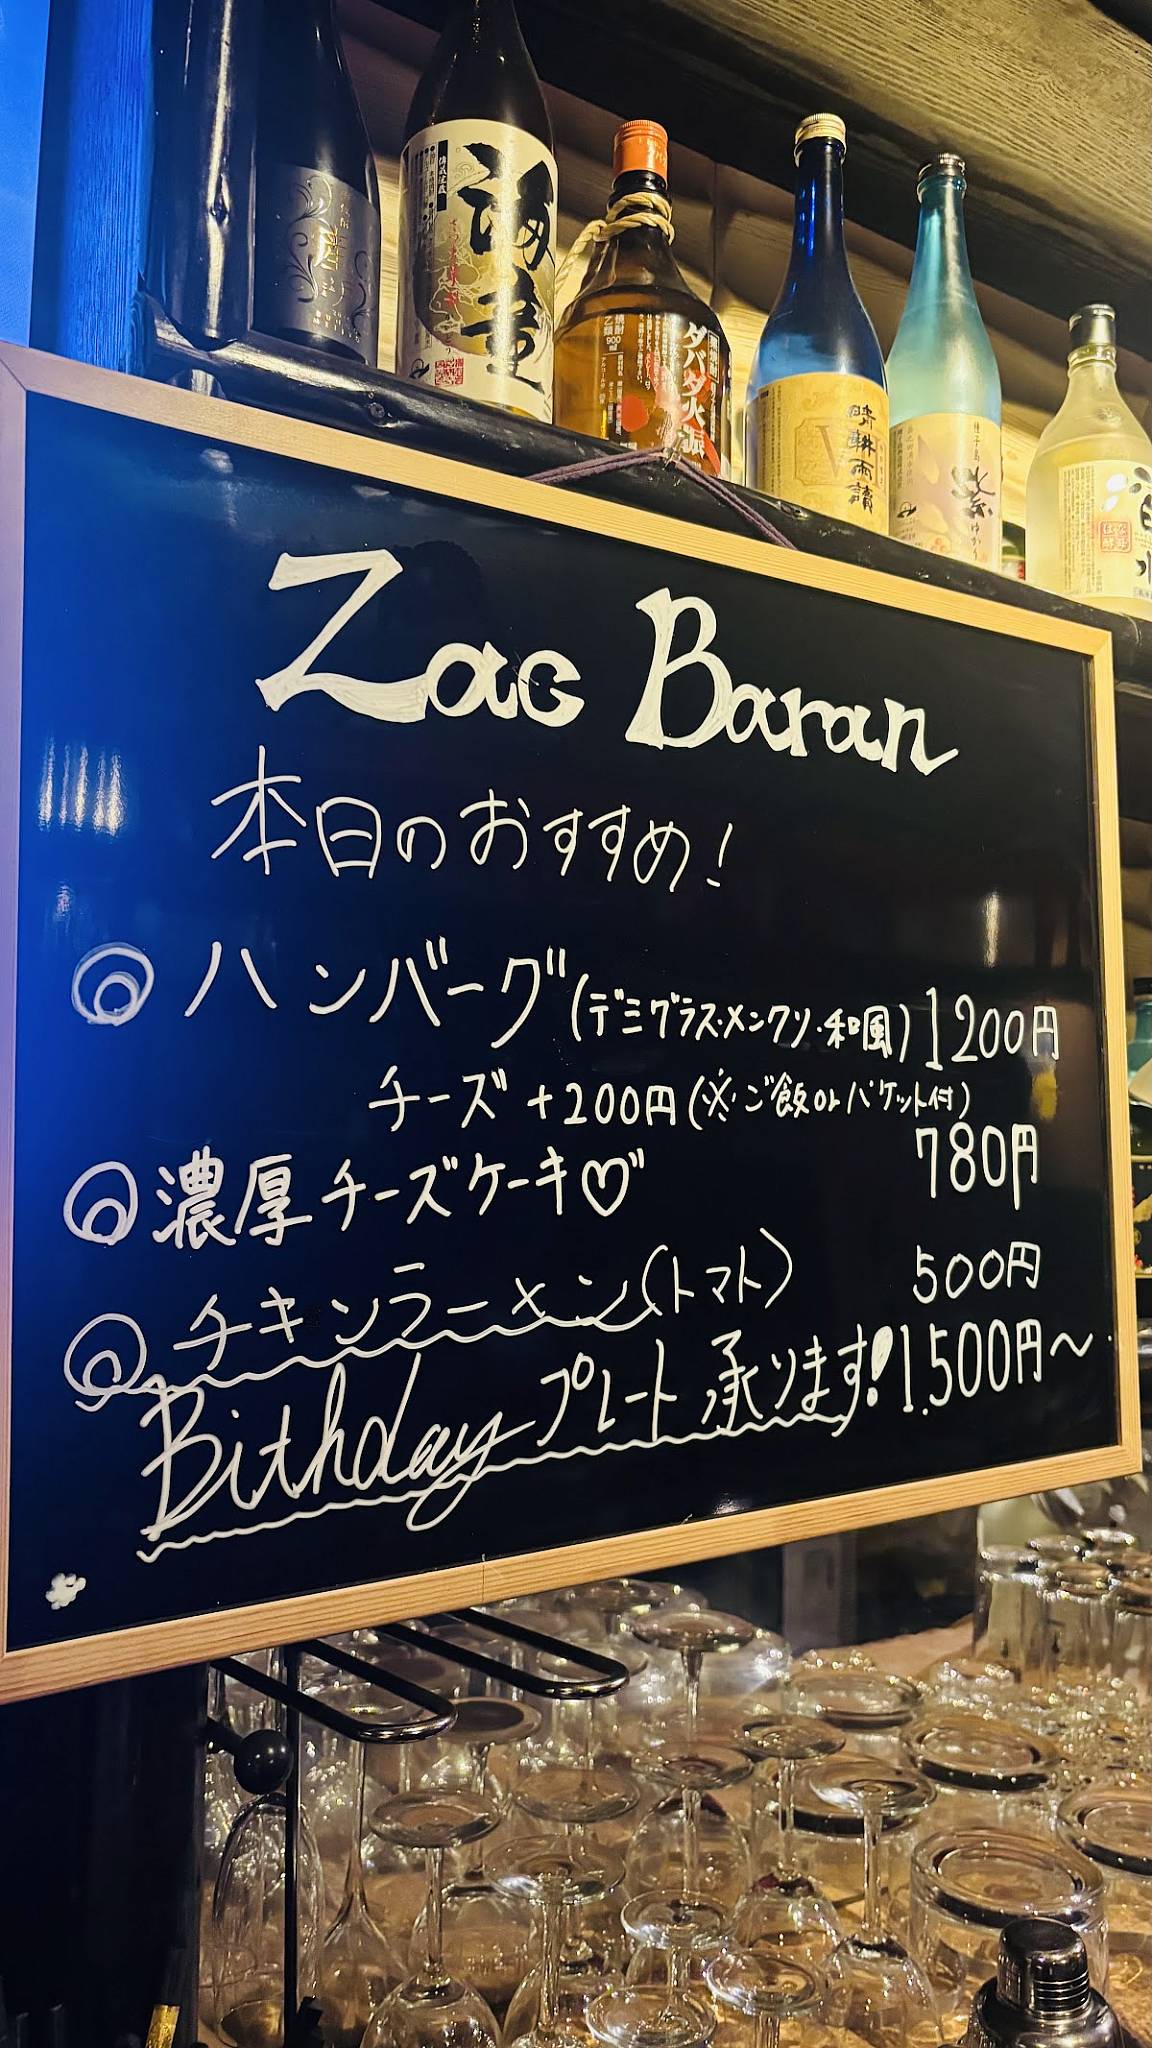 海童
焼酎
乙類
900
ml
ダバダ火振
晴耕雨讀
種子島
紫
ゆかり
Zac Baran
本日のおすすめ!
◎ハンバーグ(デミグラス・メンクリ・和風)1200円
チーズ+200円(※ご飯orバケット付)
◎濃厚チーズケーキ♡" 780円
◎チキンラーメン(トマト) 500円
Bithdayプレート承ります!1.500円〜